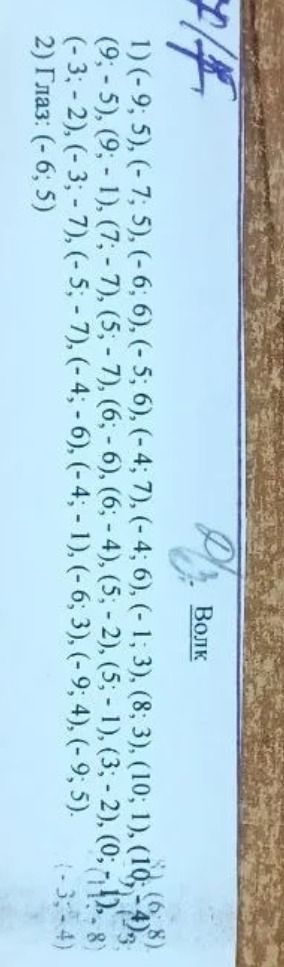 Д/З. Волк
1) (- 9; 5), (- 7; 5), (- 6; 6), (- 5; 6), (- 4; 7), (- 4; 6), (- 1; 3), (8; 3), (10; 1), (10; - 4),
(9; - 5), (9; - 1), (7; - 7), (5; - 7), (6; - 6), (6; - 4), (5; - 2), (5; - 1), (3; - 2), (0; - 1),
(- 3; - 2), (- 3; - 7), (- 5; - 7), (- 4; - 6), (- 4; - 1), (- 6; 3), (- 9; 4), (- 9; 5).
2) Глаз: (- 6; 5)